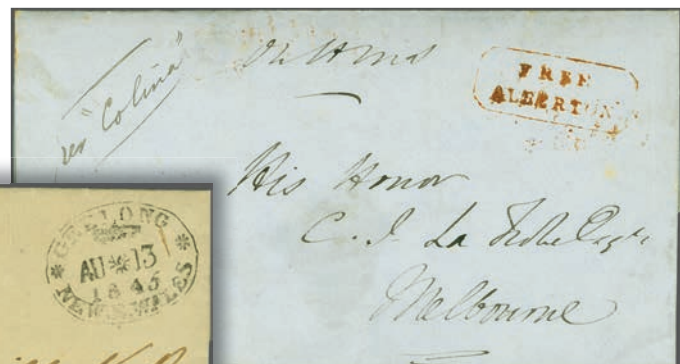 On HMS
per "Colina"
FREE
ALBERTON
His Honor
C. J. La Trobe Esqre
Melbourne
GEELONG
AU 13
1845
NEW S. WALES